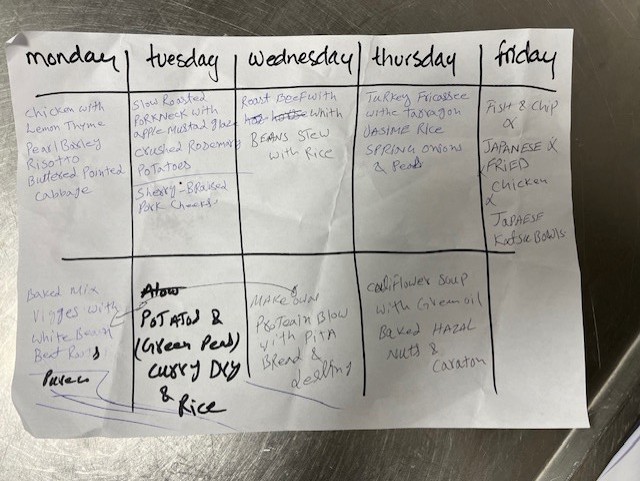 monday
tuesday
wednesday
thursday
friday
Chicken with
Lemon Thyme
Pearl Barley
Risotto
Buttered Pointed
Cabbage
Slow Roasted
Pork Neck with
apple Mustad glaze
crushed Rosemary
Potatoes
Sherry-Braised
Pork Cheeks.
Roast Beef with
Whith
BEANS Stew
with Rice
Turkey Fricassee
withe Tarragon
Jasime Rice
SPRING ONIONS
& Peas
Fish & Chip
or
JAPANESE
FRIED
chicken
&
JaPAESE
Katsu Bowls
Baked Mix
Vigges with
White Bean
Beet Roots
Purea
Alow
POTATOS &
(Green Peas)
Curry Dry
&
Rice
MAKE OWN
Protealn Blow
with PITA
BREAD &
Cauliflower Soup
with Green oil
Baked HAZAL
Nuts &
Caraton